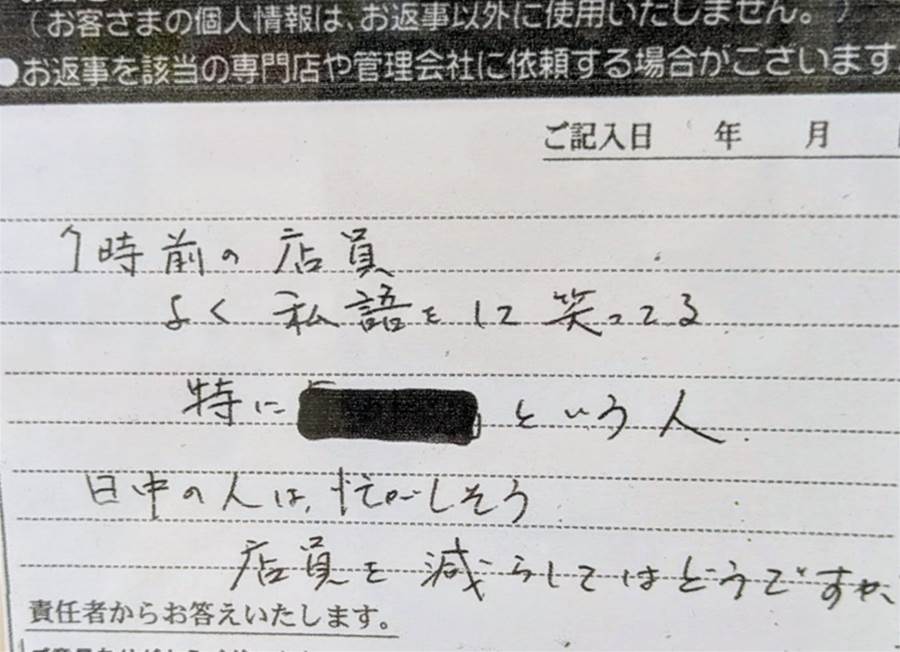 （お客さまの個人情報は、お返事以外に使用いたしません。）
●お返事を該当の専門店や管理会社に依頼する場合がございます
ご記入日　年　月
7時前の店員
よく私語をして笑ってる
特に　という人
日中の人は、忙がしそう
店員を減らしてはどうですか、
責任者からお答えいたします。